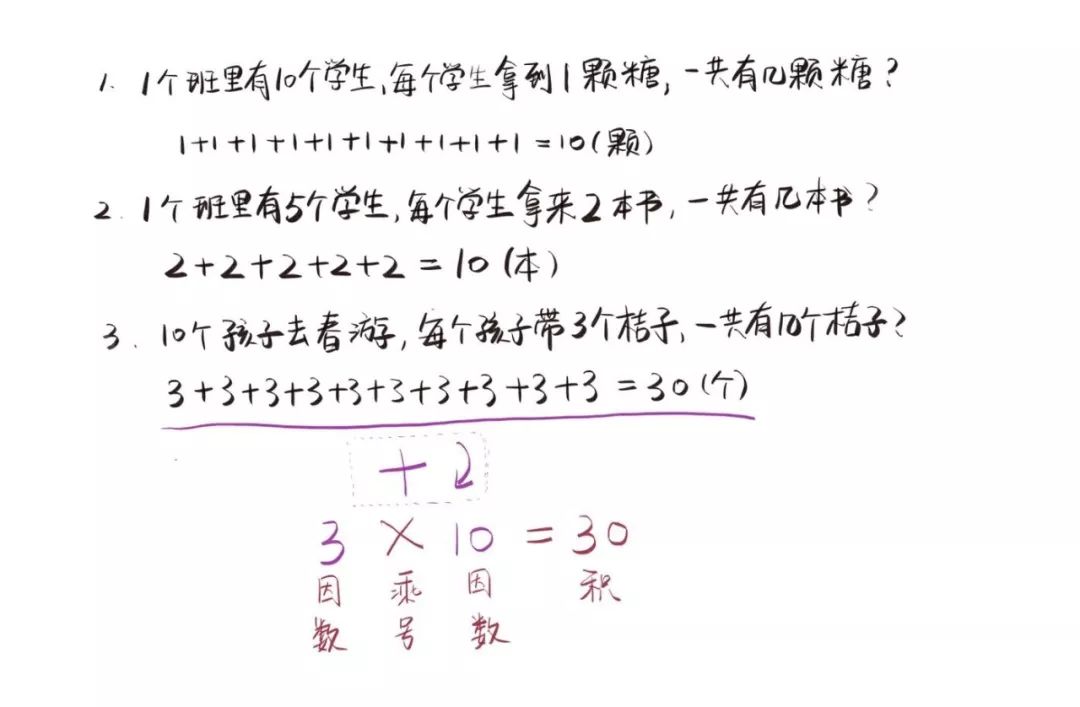 1. 1个班里有10个学生,每个学生拿到1颗糖,一共有几颗糖?
1+1+1+1+1+1+1+1+1+1=10(颗)
2. 1个班里有5个学生,每个学生拿来2本书,一共有几本书?
2+2+2+2+2=10(本)
3. 10个孩子去春游,每个孩子带3个桔子,一共有几个桔子?
3+3+3+3+3+3+3+3+3+3=30(个)
+
3×10=30
因数 乘号 因数 积